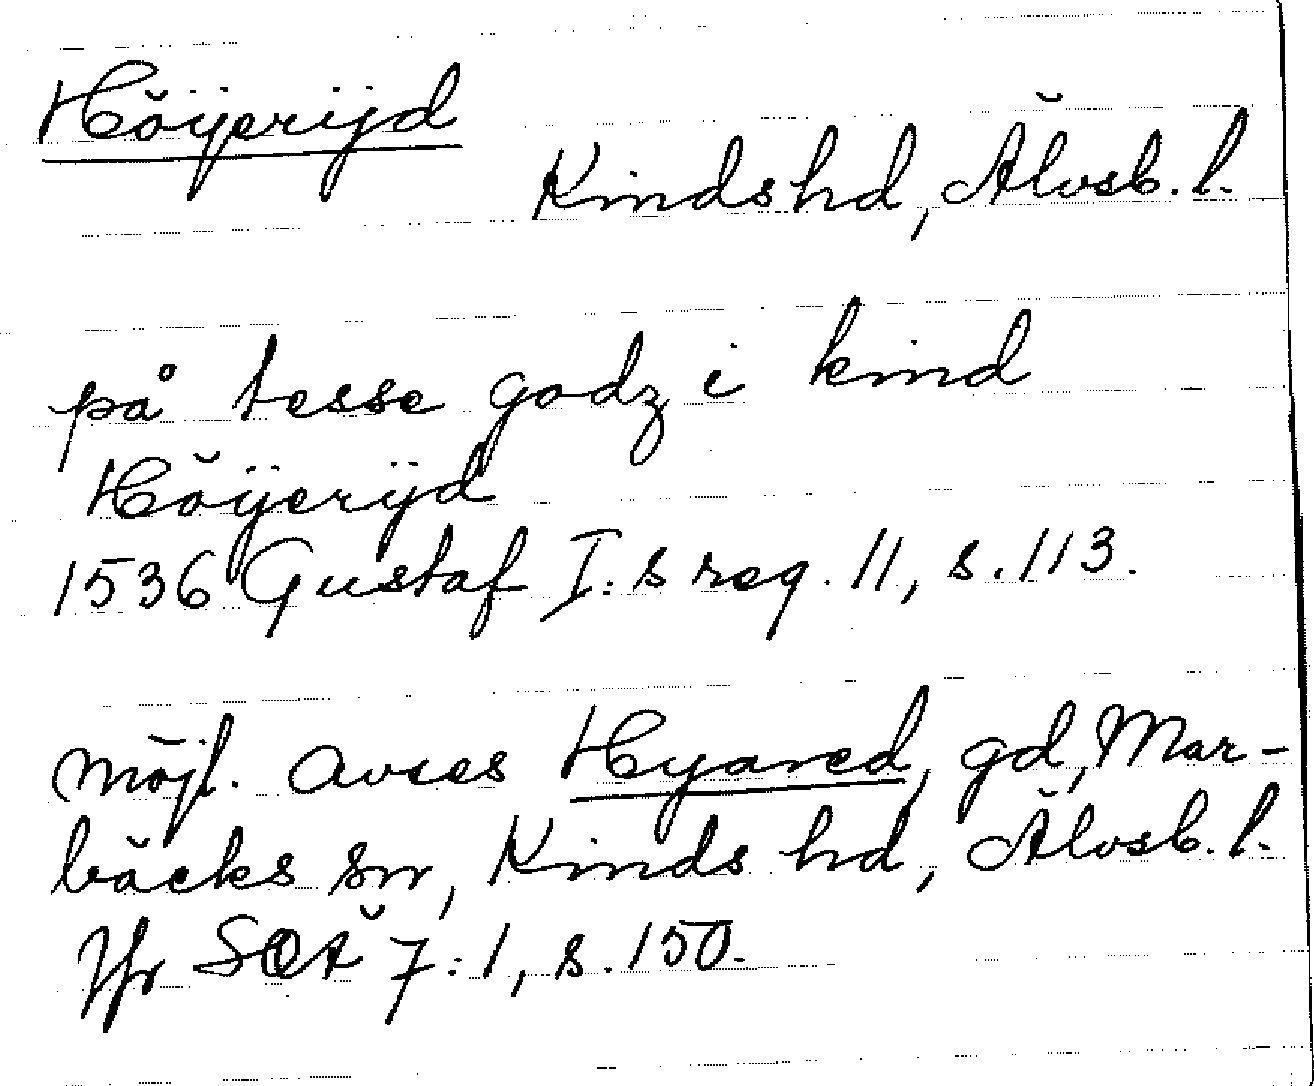 Höÿerÿd
Kinds hd, Älvsb. l.
på tesse godz i kind
Höÿerÿd
1536 Gustaf I:s reg. 11, s. 113.
möjl. avses Hyared, gd, Mar-
bäcks sn, Kinds hd, Älvsb. l.
Jfr SOÄ 7:1, s. 150.